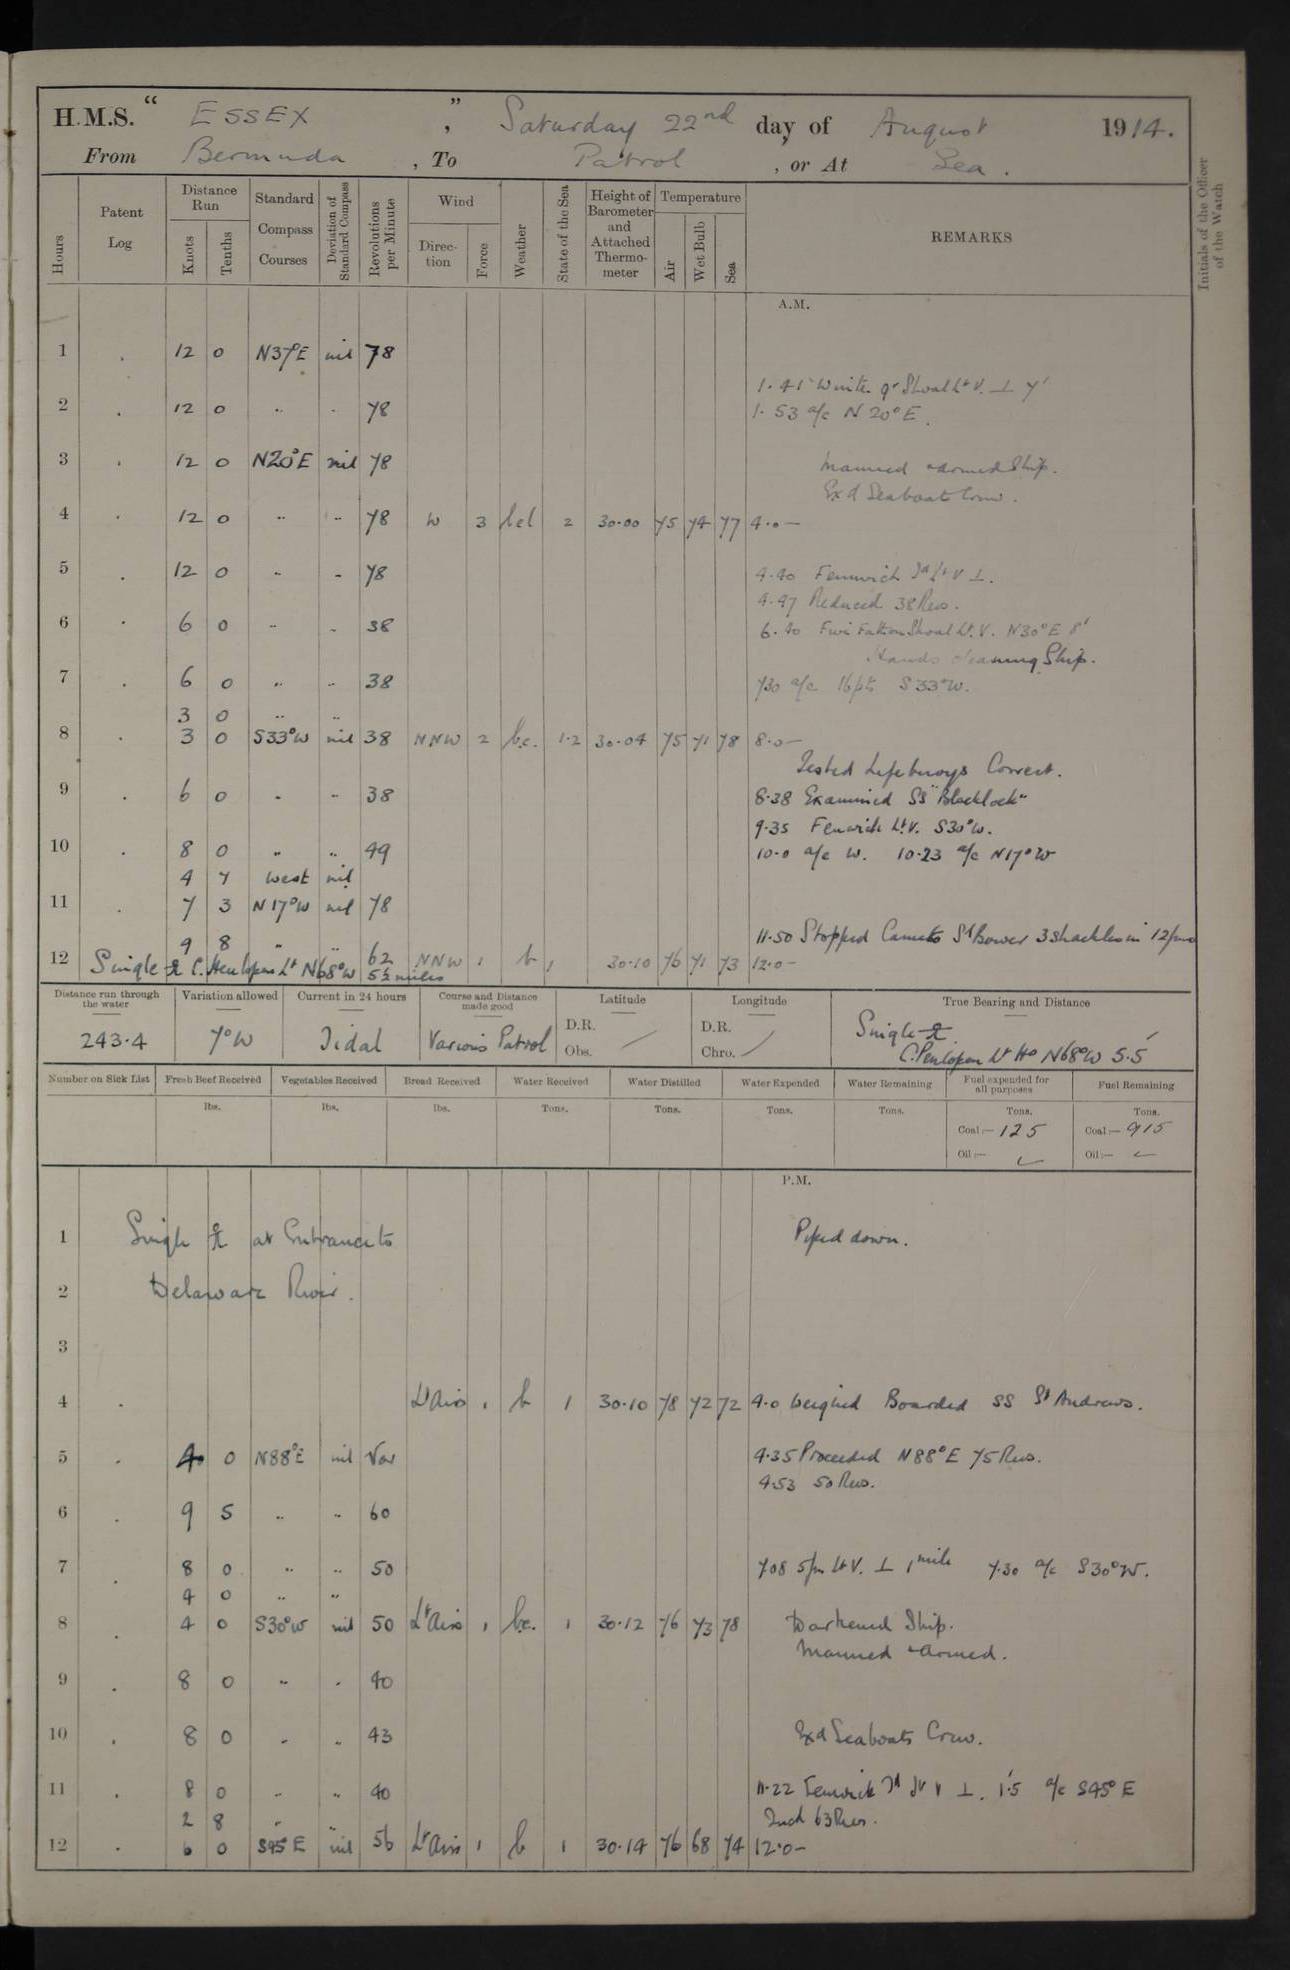 H.M.S. " ESSEX ", Saturday 22nd day of August 1914.
From Bermuda, To Patrol, or At Sea.
Hours
Patent Log
Distance Run
Knots
Tenths
Standard Compass Courses
Deviation of Standard Compass
Revolutions per Minute
Wind
Direction
Force
Weather
State of the Sea
Height of Barometer and Attached Thermometer
Temperature
Air
Wet Bulb
Sea
REMARKS
Initials of the Officer of the Watch
A.M.
1 . 12 0 N37°E nil 78
1.41 Winter Qr Shoal Lt V. ⊥ 7'
2 . 12 0 " . 78 1.53 a/c N 20°E.
3 . 12 0 N20°E nil 78 Manned & armed Ship.
Exd Seaboat Crew.
4 . 12 0 " " 78 W 3 bcl 2 30.00 75 74 77 4.0 —
5 . 12 0 " " 78 4.40 Fenwick Id Lt V ⊥.
4.47 Reduced 38 Revs.
6 . 6 0 " " 38 6.40 Five Fathom Shoal Lt. V. N30°E 8'
Hands cleaning Ship.
7 . 6 0 " " 38 730 a/c 16 pts S33°W.
3 0 " "
8 . 3 0 S33°W nil 38 NNW 2 b.c. 1.2 30.04 75 71 78 8.0 —
Tested Lifebuoys Correct.
9 . 6 0 " " 38 8.38 Examined SS "Blacklock"
9.35 Fenwick Lt. V. S30°W.
10 . 8 0 " " 49 10.0 a/c W. 10.23 a/c N17°W
4 7 West nil
11 . 7 3 N17°W nil 78
9 8 " " 62 11.50 Stopped Came to Sd Bower 3 shackles in 12 fms
12 Single ⚓ C. Henlopen Lt N68°W 5½ miles NNW 1 b 1 30.10 76 71 73 12.0 —
Distance run through the water
Variation allowed
Current in 24 hours
Course and Distance made good
Latitude
Longitude
True Bearing and Distance
243.4 7°W Tidal Various Patrol
D.R.
Obs.
D.R.
Chro.
Single ⚓
C. Penlopen Lt Ho N68°W 5.5'
Number on Sick List
Fresh Beef Received
Vegetables Received
Bread Received
Water Received
Water Distilled
Water Expended
Water Remaining
Fuel expended for all purposes
Fuel Remaining
lbs. lbs. lbs. Tons. Tons. Tons. Tons. Tons. Tons.
Coal:— 125 Coal:— 915
Oil:— Oil:—
P.M.
1 Single ⚓ at Entrance to Piped down.
2 Delaware River.
3
4 . Lt Airs 1 b 1 30.10 78 72 72 4.0 Weighed Boarded SS St Andrews.
5 . 4 0 N88°E nil Var 4.35 Proceeded N88°E 75 Revs.
4.53 50 Revs.
6 . 9 5 " " 60
7 . 8 0 " " 50 7.08 Lt V. ⊥ 1 mile 7.30 a/c S30°W.
4 0 " "
8 . 4 0 S30°W nil 50 Lt Airs 1 b.c. 1 30.12 76 73 78 Darkened Ship.
Manned & armed.
9 . 8 0 " . 40
10 . 8 0 " " 43 Exd Seaboats Crew.
11 . 8 0 " " 40 11.22 Fenwick Id Lt V ⊥. 1.5' a/c S45°E
2 8 " " Incd 63 Revs.
12 . 6 0 S45°E nil 56 Lt Airs 1 b 1 30.14 76 68 74 12.0 —